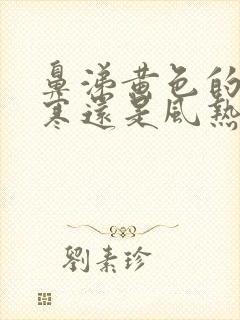 鼻涕黃色的
寒還是風熱
劉素珍